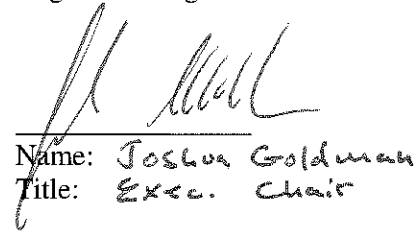 Name: Joshua Goldman
Title: Exec. Chair